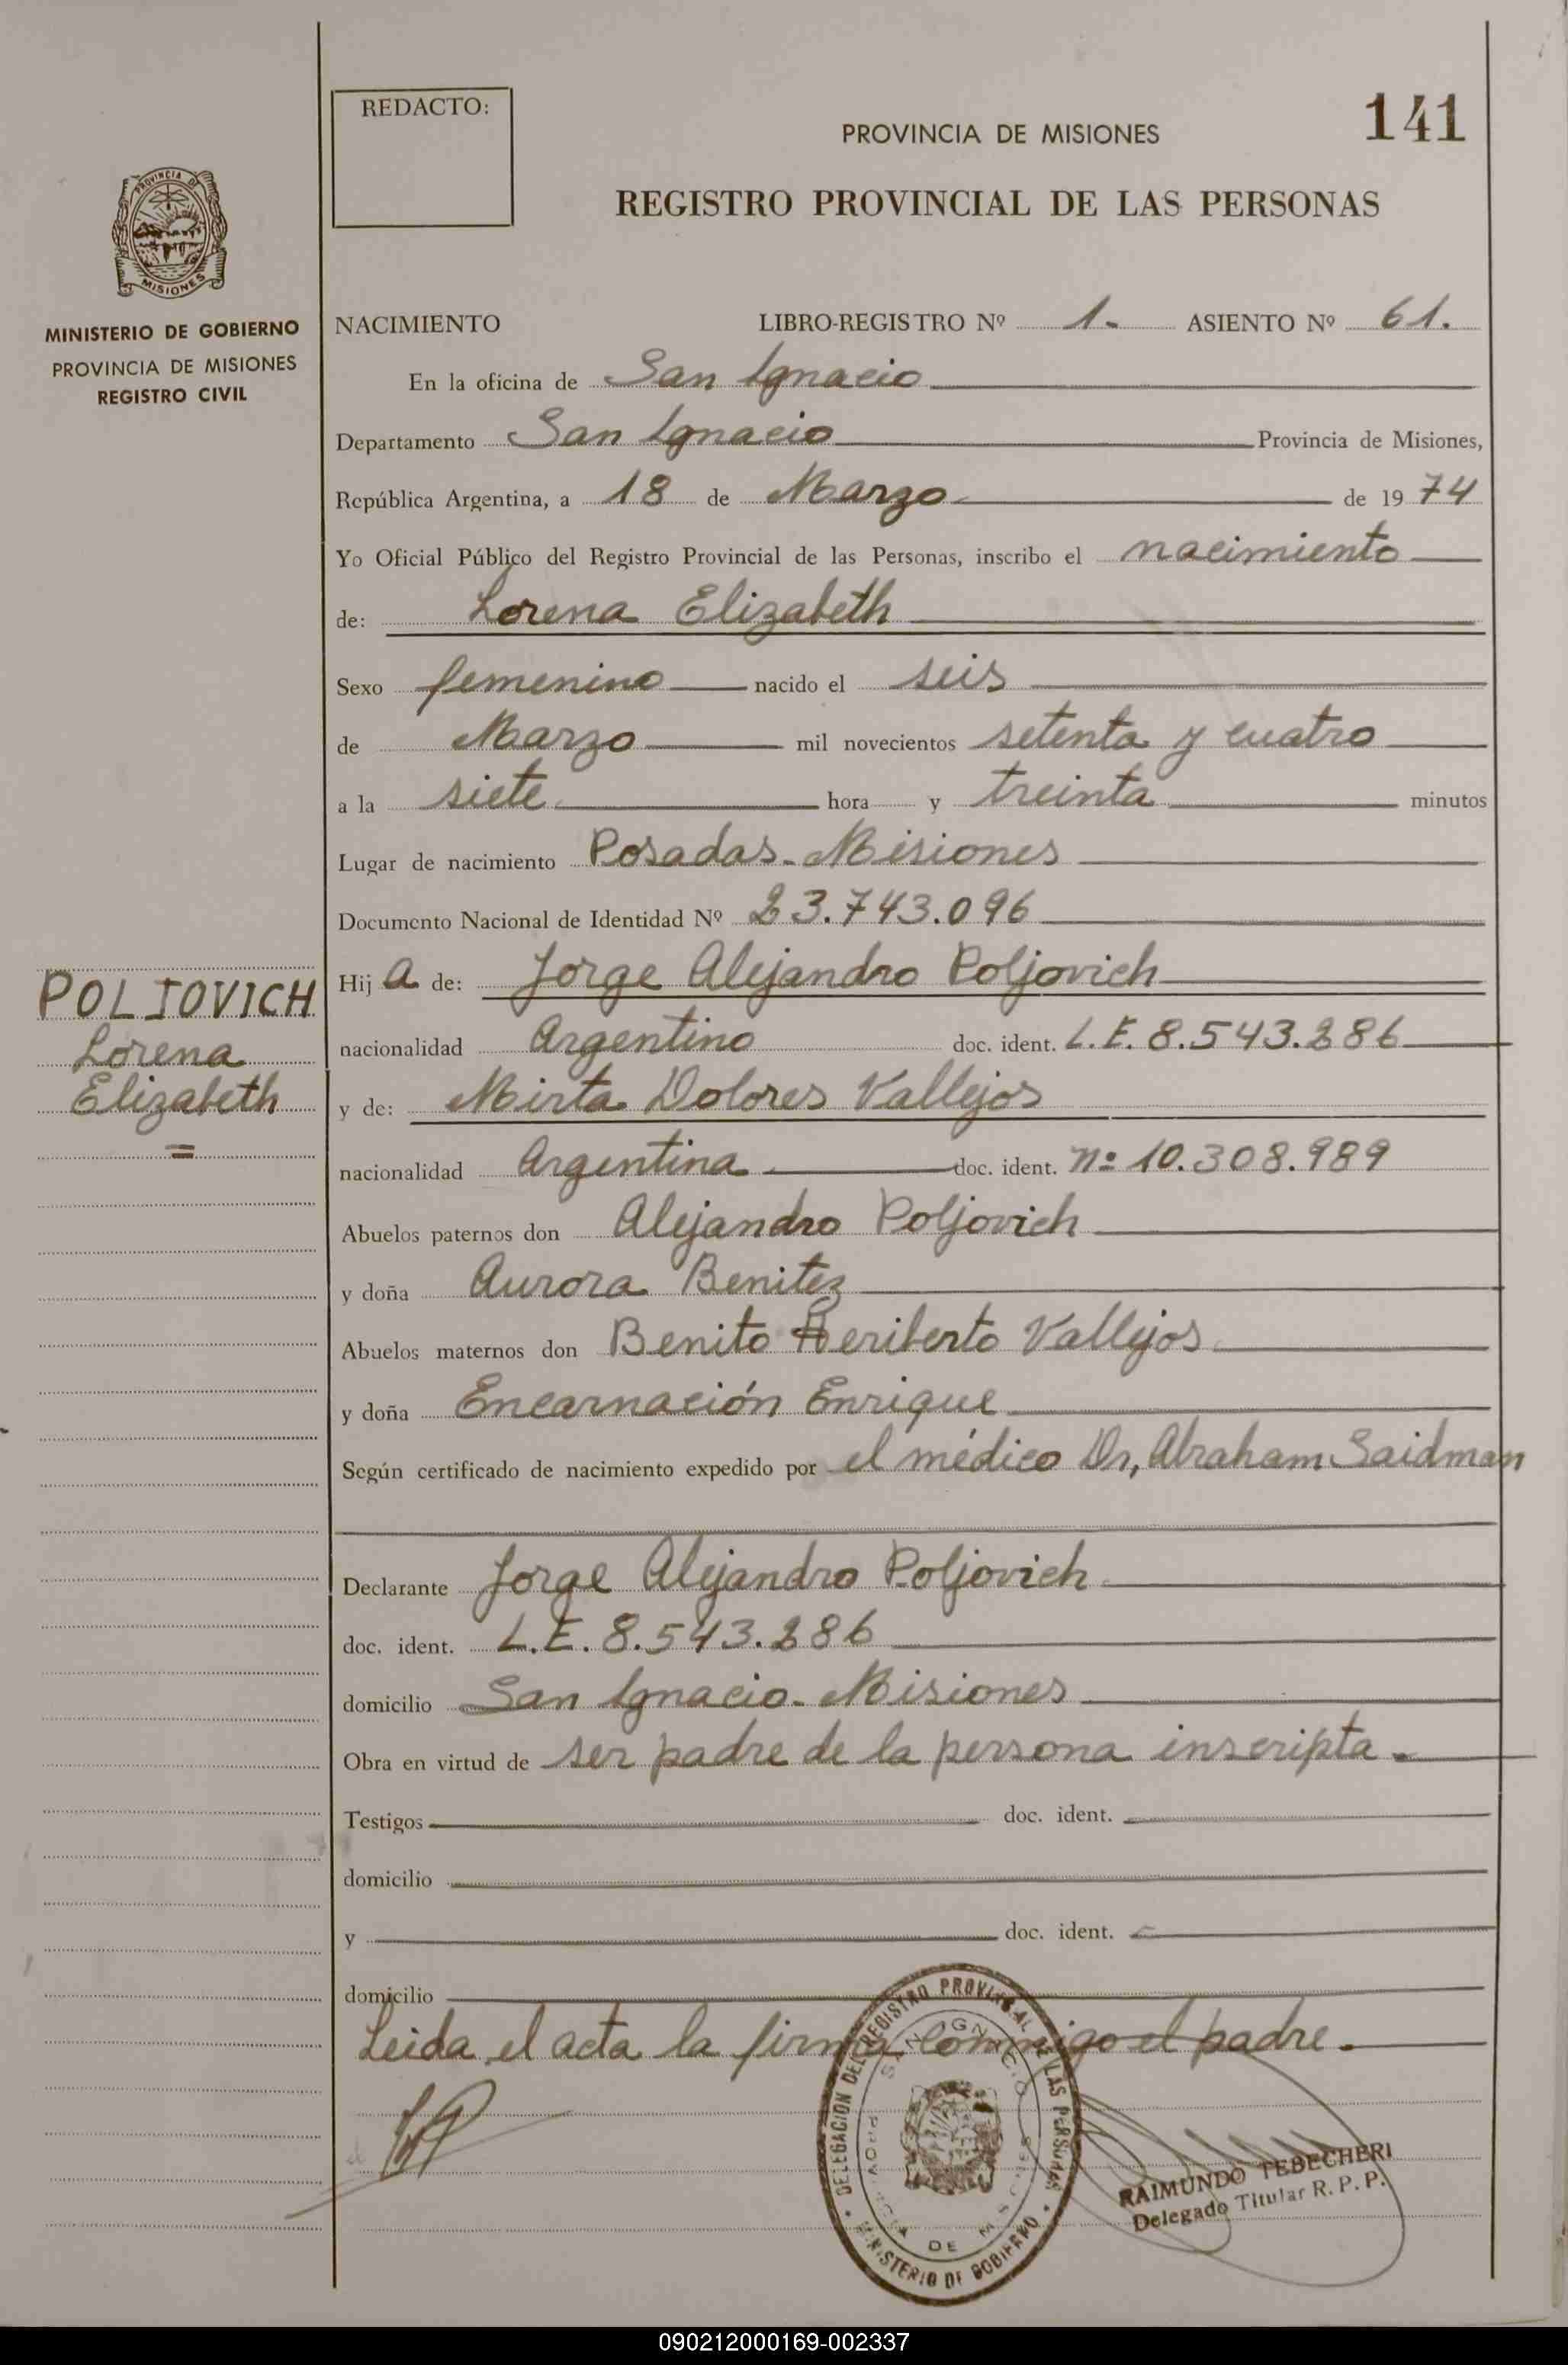 REDACTO:
141
PROVINCIA DE MISIONES
REGISTRO PROVINCIAL DE LAS PERSONAS
PROVINCIA DE
MISIONES
MINISTERIO DE GOBIERNO
PROVINCIA DE MISIONES
REGISTRO CIVIL
NACIMIENTO LIBRO-REGISTRO Nº 1. ASIENTO Nº 61.
En la oficina de San Ignacio
Departamento San Ignacio Provincia de Misiones,
República Argentina, a 18 de Marzo de 1974
Yo Oficial Público del Registro Provincial de las Personas, inscribo el nacimiento
de: Lorena Elizabeth
Sexo femenino nacido el seis
de Marzo mil novecientos setenta y cuatro
a la siete hora y treinta minutos
Lugar de nacimiento Posadas - Misiones
Documento Nacional de Identidad Nº 23.743.096
POLJOVICH
Lorena
Elizabeth
=
Hija de: Jorge Alejandro Poljovich
nacionalidad Argentino doc. ident. L.E. 8.543.286
y de: Mirta Dolores Vallejos
nacionalidad Argentina doc. ident. nº 10.308.989
Abuelos paternos don Alejandro Poljovich
y doña Aurora Benitez
Abuelos maternos don Benito Heriberto Vallejos
y doña Encarnación Enrique
Según certificado de nacimiento expedido por el médico Dr, Abraham Saidman
Declarante Jorge Alejandro Poljovich
doc. ident. L.E. 8.543.286
domicilio San Ignacio - Misiones
Obra en virtud de ser padre de la persona inscripta.
Testigos doc. ident.
domicilio
y doc. ident.
domicilio
Leida el acta la firma conmigo el padre.
DELEGACION DEL REGISTRO PROVINCIAL DE LAS PERSONAS
SAN IGNACIO
PROVINCIA DE MISIONES
MINISTERIO DE GOBIERNO
RAIMUNDO TEBECHERI
Delegado Titular R. P. P.
090212000169-002337